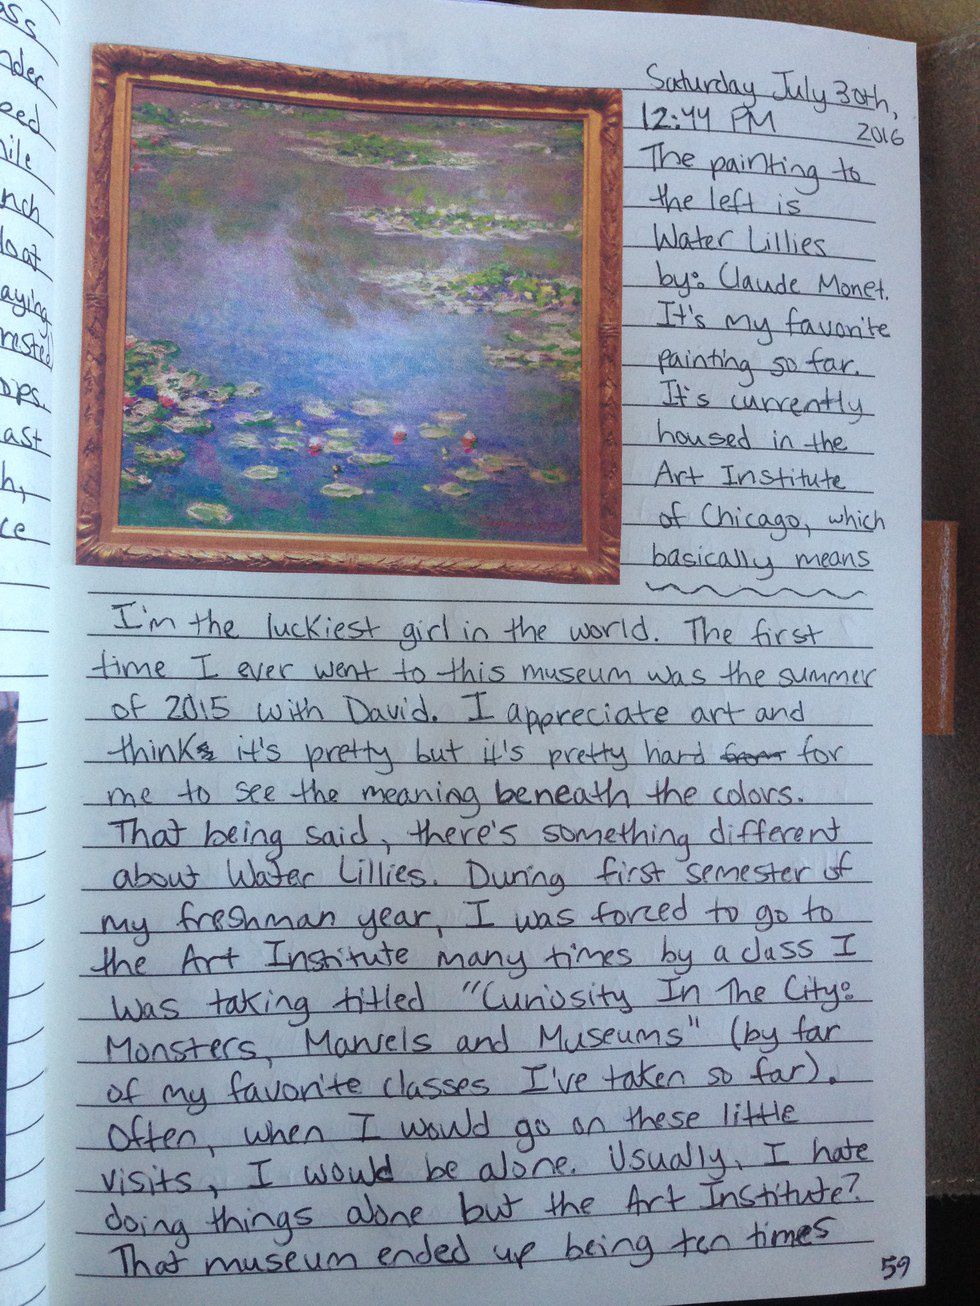 ass
nder
eed
ile
nch
loat
aying
rested
ops.
ast
h,
ce
Saturday July 30th,
12:44 PM 2016
The painting to
the left is
Water Lillies
by: Claude Monet.
It's my favorite
painting so far.
It's currently
housed in the
Art Institute
of Chicago, which
basically means
I'm the luckiest girl in the world. The first
time I ever went to this museum was the summer
of 2015 with David. I appreciate art and
think it's pretty but it's pretty hard from for
me to see the meaning beneath the colors.
That being said, there's something different
about Water Lillies. During first semester of
my freshman year, I was forced to go to
the Art Institute many times by a class I
was taking titled "Curiosity In The City:
Monsters, Marvels and Museums" (by far
of my favorite classes I've taken so far).
Often, when I would go on these little
visits, I would be alone. Usually, I hate
doing things alone but the Art Institute?
That museum ended up being ten times
59